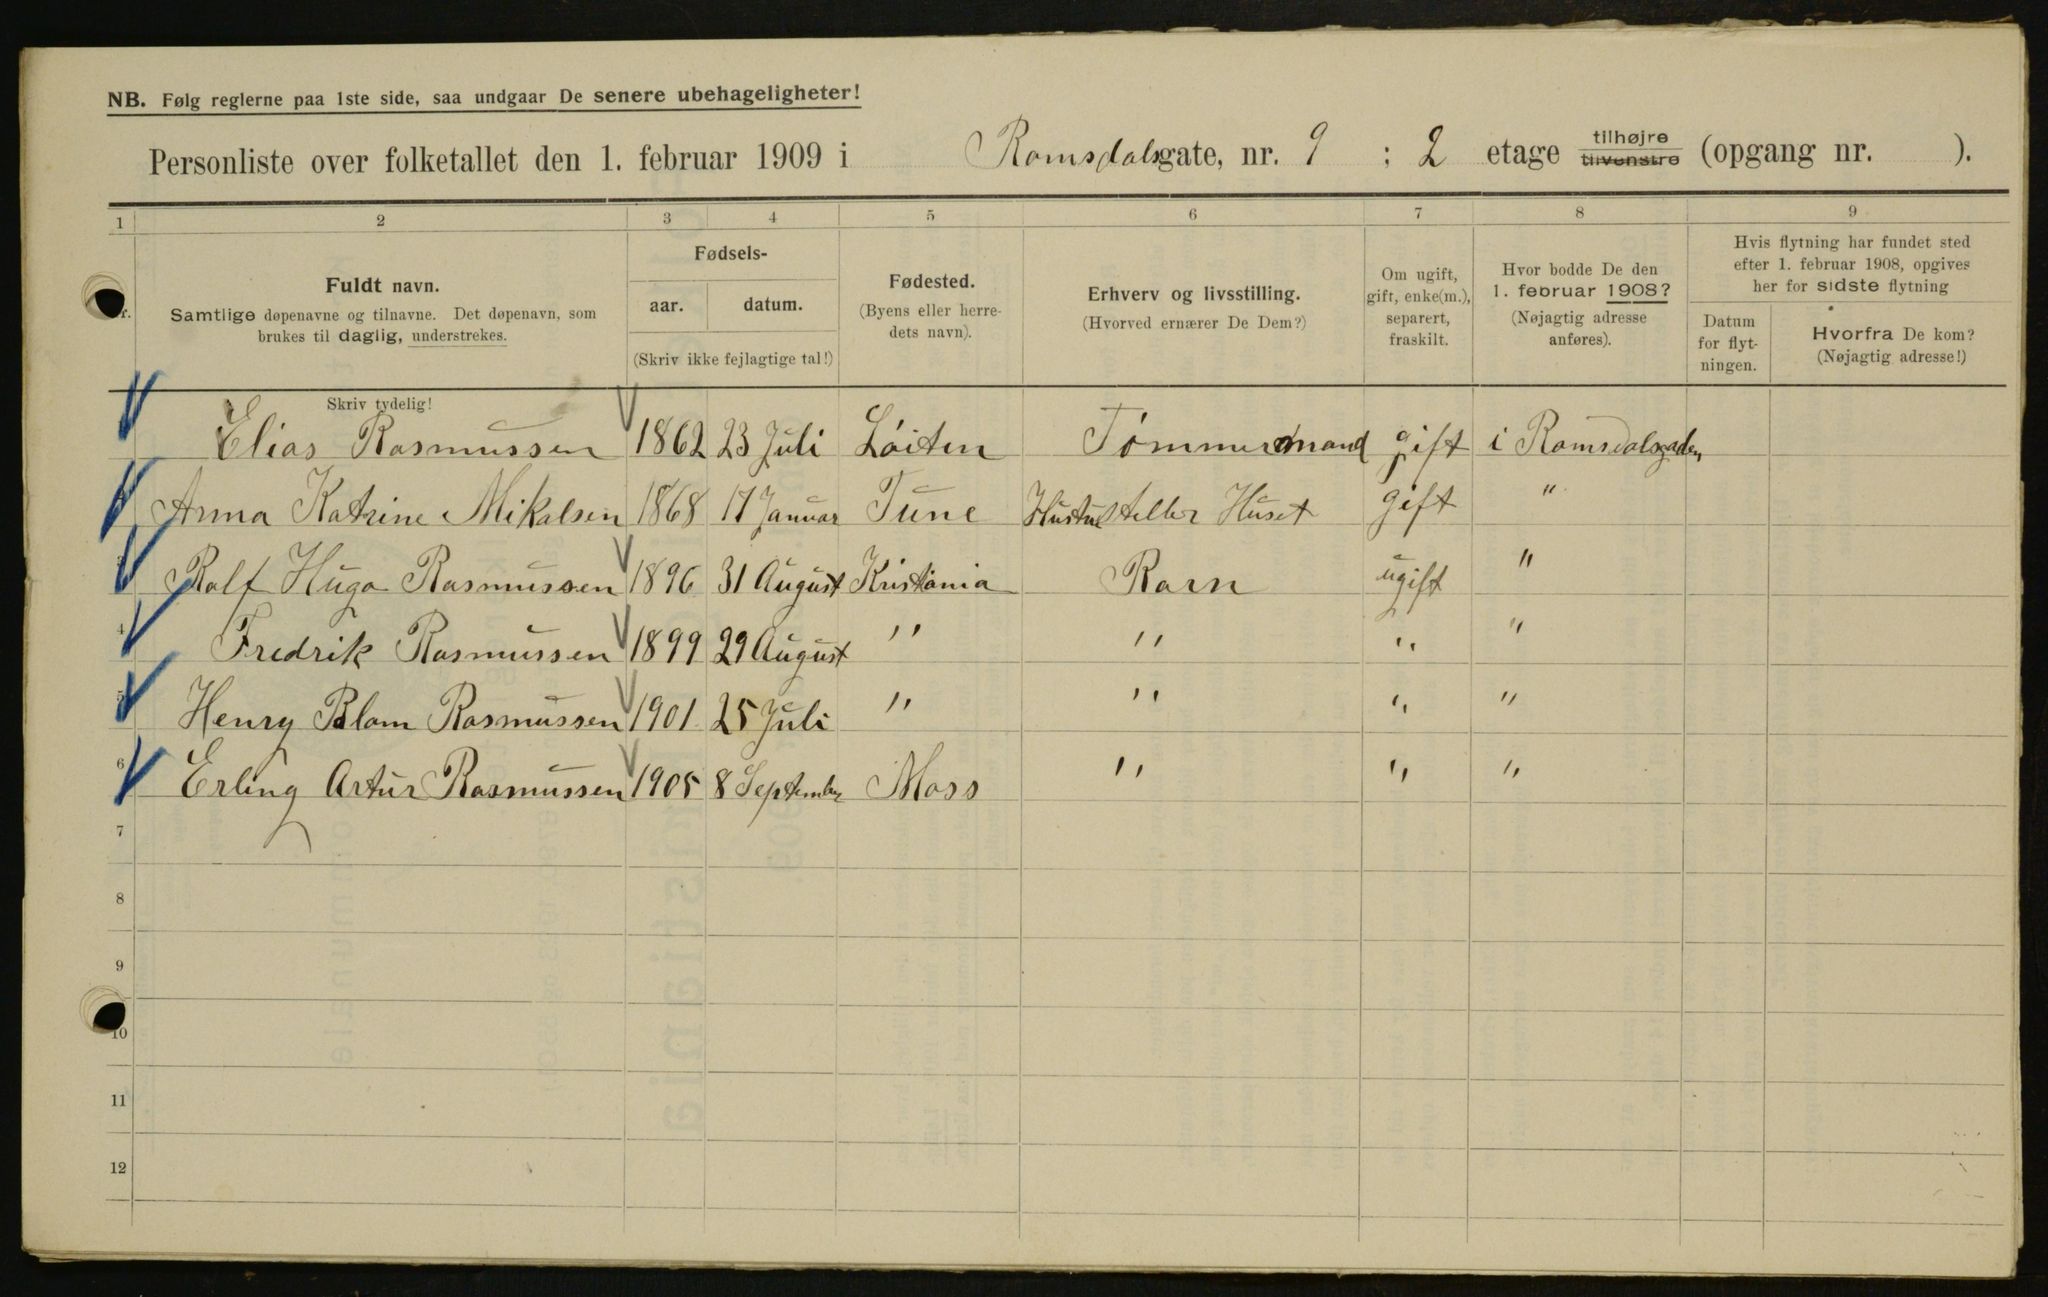 NB. Følg reglerne paa 1ste side, saa undgaar De senere ubehageligheter!
Personliste over folketallet den 1. februar 1909 i Romsdalsgate, nr. 9 ; 2 etage tilhøjre tilvenstre (opgang nr. ).
1 2 3 4 5 6 7 8 9
Nr.
Fuldt navn.
Samtlige døpenavne og tilnavne. Det døpenavn, som
brukes til daglig, understrekes.
Skriv tydelig!
Fødsels-
aar. datum.
(Skriv ikke fejlagtige tal!)
Fødested.
(Byens eller herre-
dets navn).
Erhverv og livsstilling.
(Hvorved ernærer De Dem?)
Om ugift,
gift, enke(m.),
separert,
fraskilt.
Hvor bodde De den
1. februar 1908?
(Nøjagtig adresse
anføres).
Hvis flytning har fundet sted
efter 1. februar 1908, opgives
her for sidste flytning
Datum
for flyt-
ningen.
Hvorfra De kom?
(Nøjagtig adresse!)
Elias Rasmussen 1862 23 Juli Löiten Tömmermand gift i Romsdalsgaden
Anna Katrine Mikalsen 1868 17 Januar Tune Hustru steller Huset gift "
3 Ralf Hugo Rasmussen 1896 31 August Kristiania Barn ugift "
4 Fredrik Rasmussen 1899 29 August " " " "
5 Henry Blom Rasmussen 1901 25 Juli " " " "
6 Erling Artur Rasmussen 1905 8 September Moss " " "
7
8
9
10
11
12